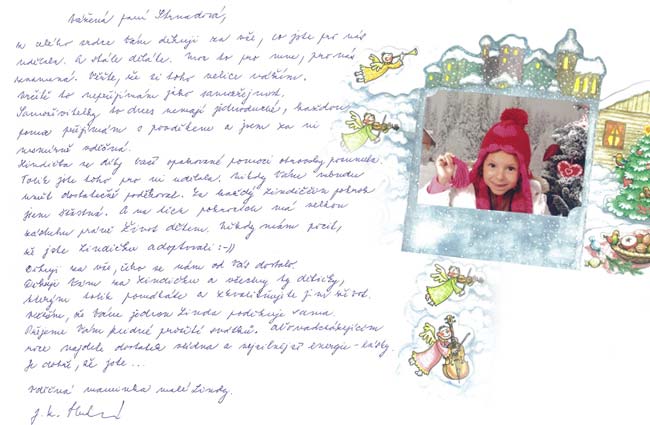 Vážená paní Strnadová,
ze celého srdce Vám děkuji za vše, co jste pro nás
udělala. A stále děláte. Moc to pro mne, pro nás
znamená. Věřte, že si toho velice vážím.
Určitě to nepřijímám jako samozřejmost.
Samoživitelky to dnes nemají jednoduché, každou
pomoc přijímám s povděkem a jsem za ni
nesmírně vděčná.
Lindička se díky Vaší opakované pomoci opravdu posunula.
Tolik jste toho pro ni udělala. Nikdy Vám nebudu
umět dostatečně poděkovat. Za každý Lindiččin pokrok
jsem šťastná. A na těch pokrocích má velkou
zásluhu právě Život dětem. Někdy mám pocit,
že jste Lindičku adoptovali :-))
Děkuji za vše, čeho se nám od Vás dostalo.
Děkuji Vám za Lindičku a všechny ty dětičky,
kterým tolik pomáháte a zkvalitňujete jim život.
Věřím, že Vám jednou Linda poděkuje sama.
Přejeme Vám klidné prožití svátků. Ať v nadcházejícím
roce najdete dostatek klidu a nejsilnější energie - lásky.
Je dobře, že jste ...
Vděčná maminka malé Lindy.